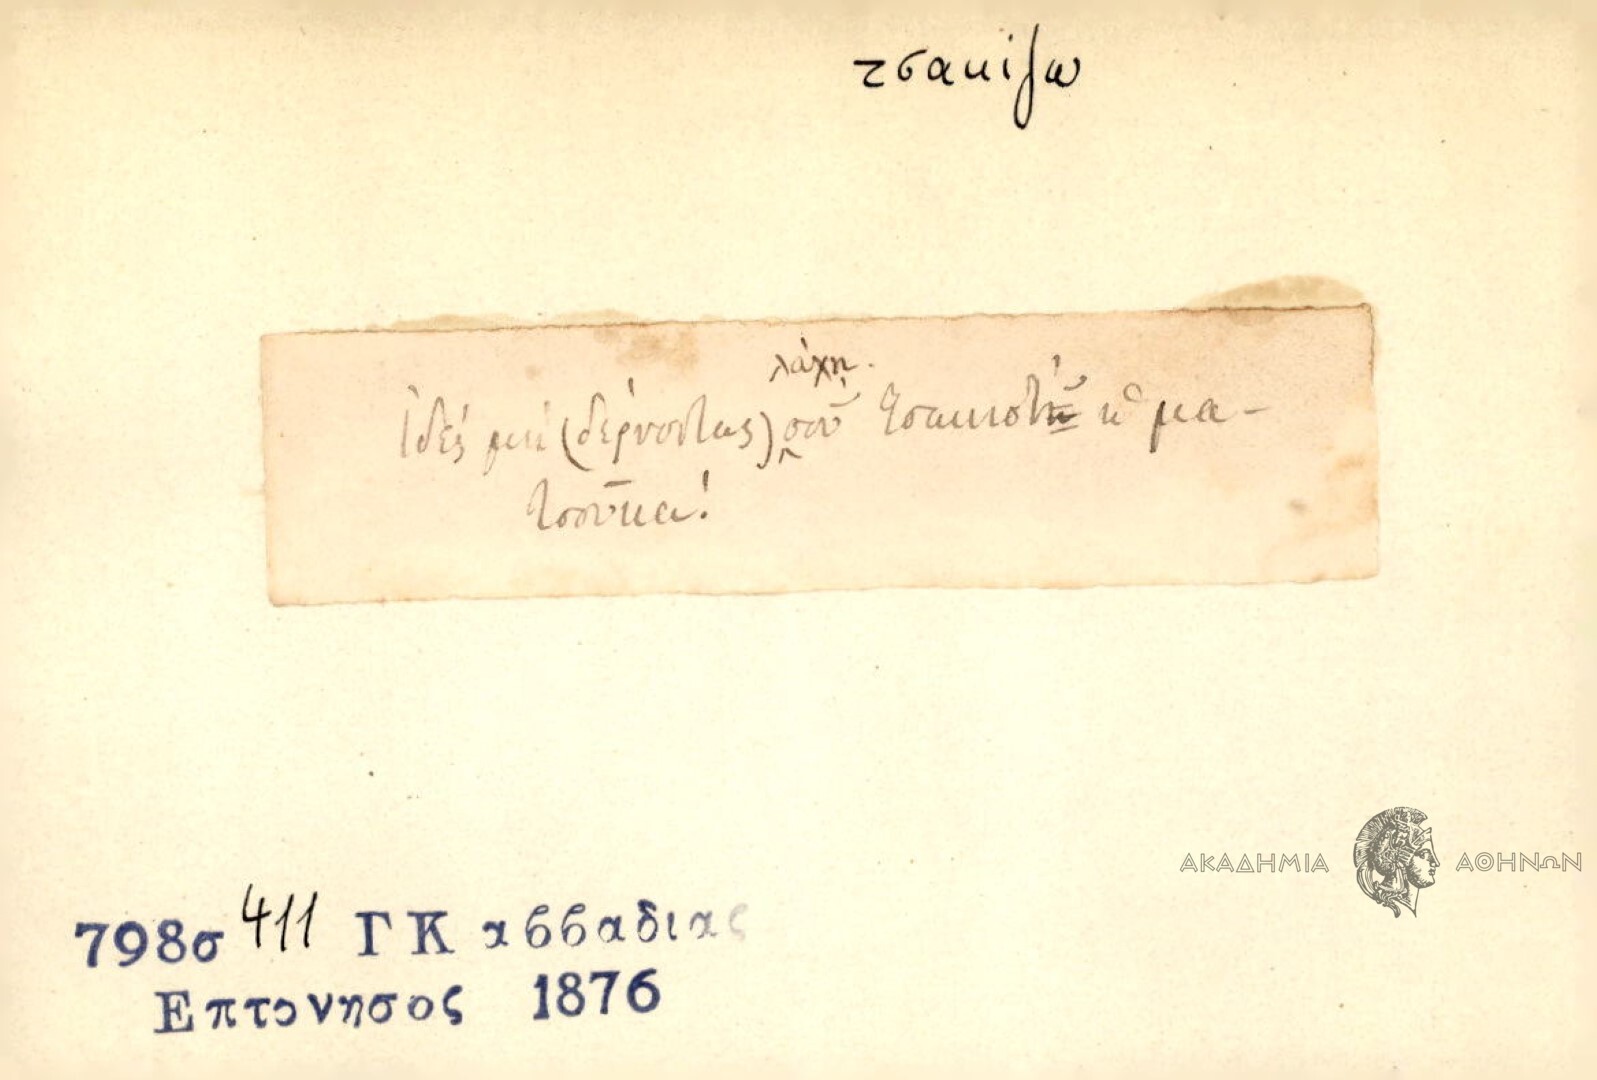 τσακίζω
λάχῃ.
Ἰδές μὴ (δέρνοντας) σοῦ τσακιστῇ κ ̀ μα-
τσοῦκα!
798σ 411 ΓΚαββαδιας
Επτονησος 1876
ΑΚΑΔΗΜΙΑ ΑΘΗΝΩΝ